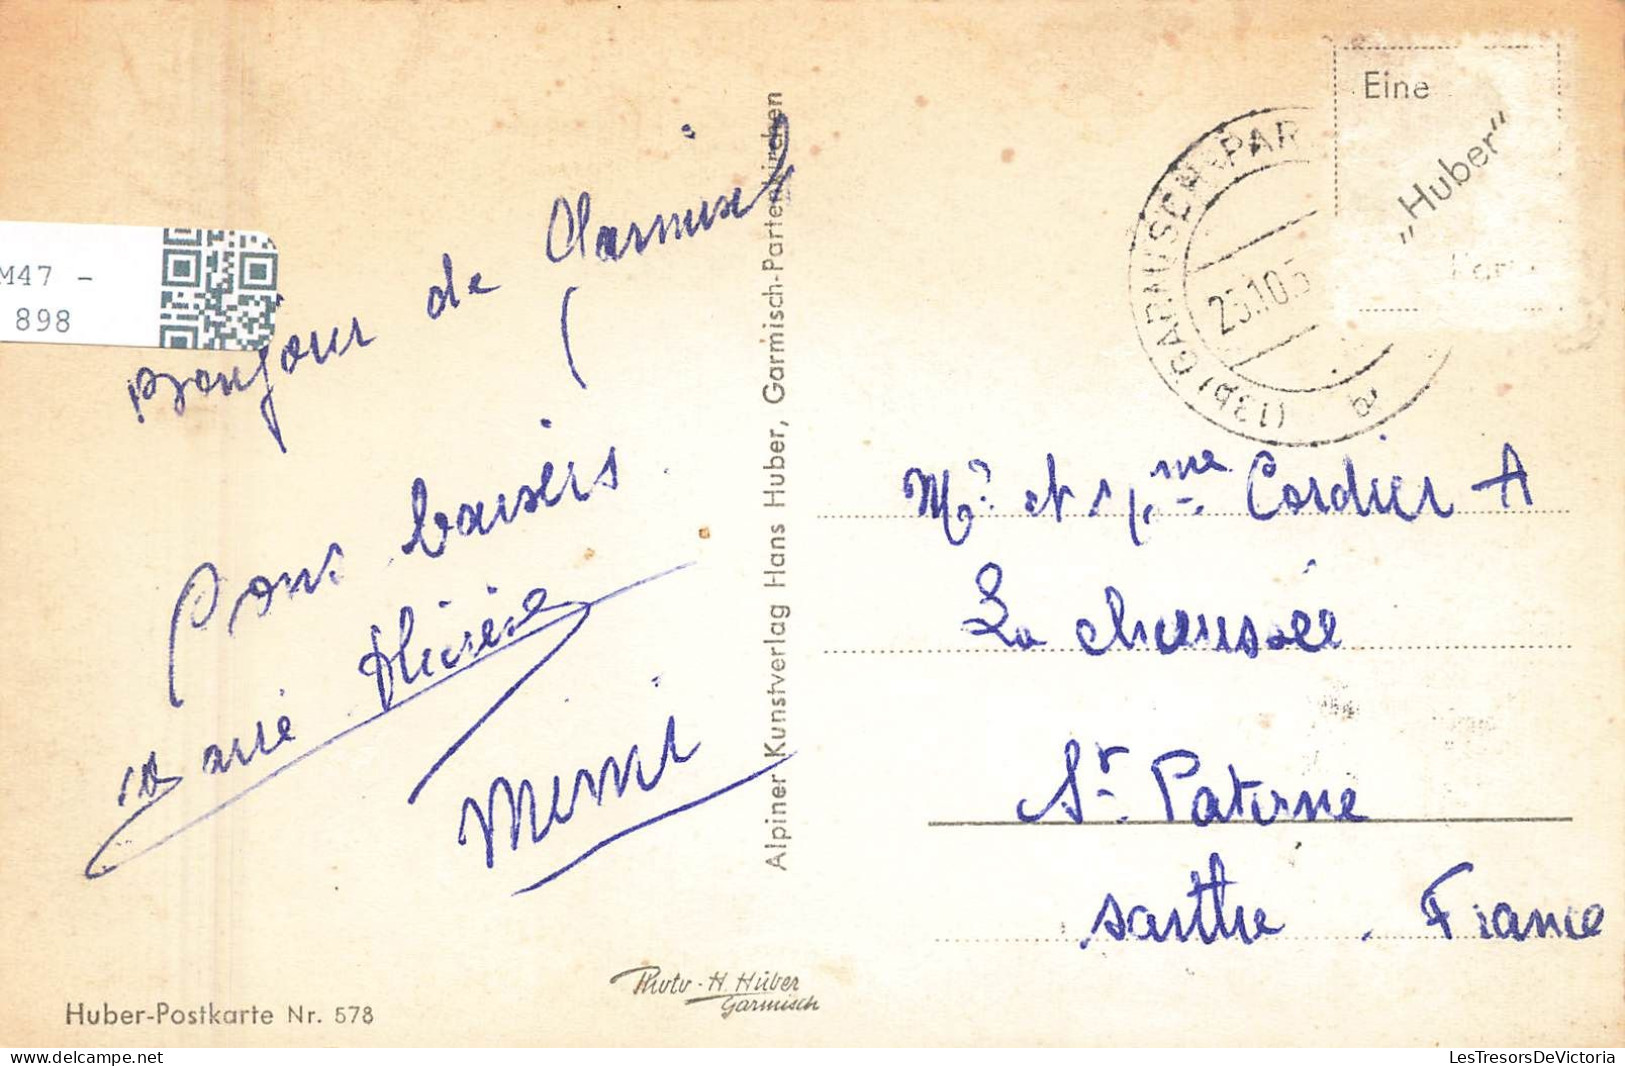 M47 -
898
Bonjour de Garmisch
Bons baisers
Marie Thérèse
Mimi
Alpiner Kunstverlag Hans Huber, Garmisch-Partenkirchen
Eine
„Huber"
Kar
(13b) GARMISCH-PAR
23.10.5
a
Mr et Mme Cordier A
La chaussée
St Paterne
Sarthe . France
Photo - H. Huber
Garmisch
Huber-Postkarte Nr. 578
LesTresorsDeVictoria